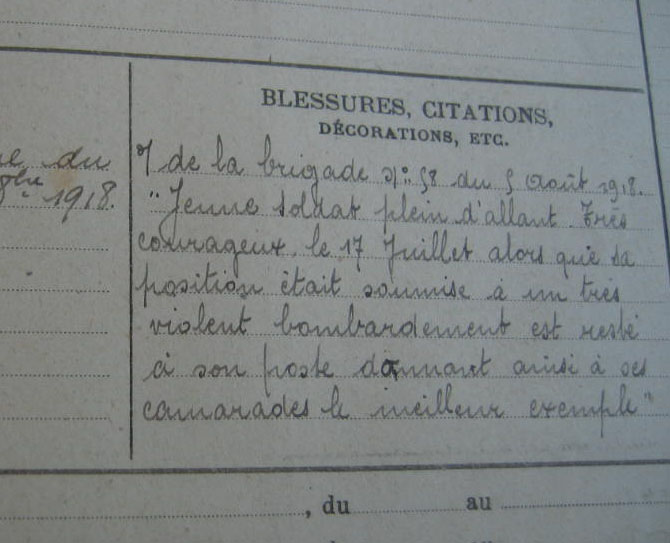 BLESSURES, CITATIONS,
DÉCORATIONS, ETC.
du
1918.
de la brigade N° 58 du 5 Août 1918.
"Jeune soldat plein d'allant. Très
courageux, le 17 Juillet alors que sa
position était soumise à un très
violent bombardement est resté
à son poste donnant ainsi à ses
camarades le meilleur exemple"
, du au